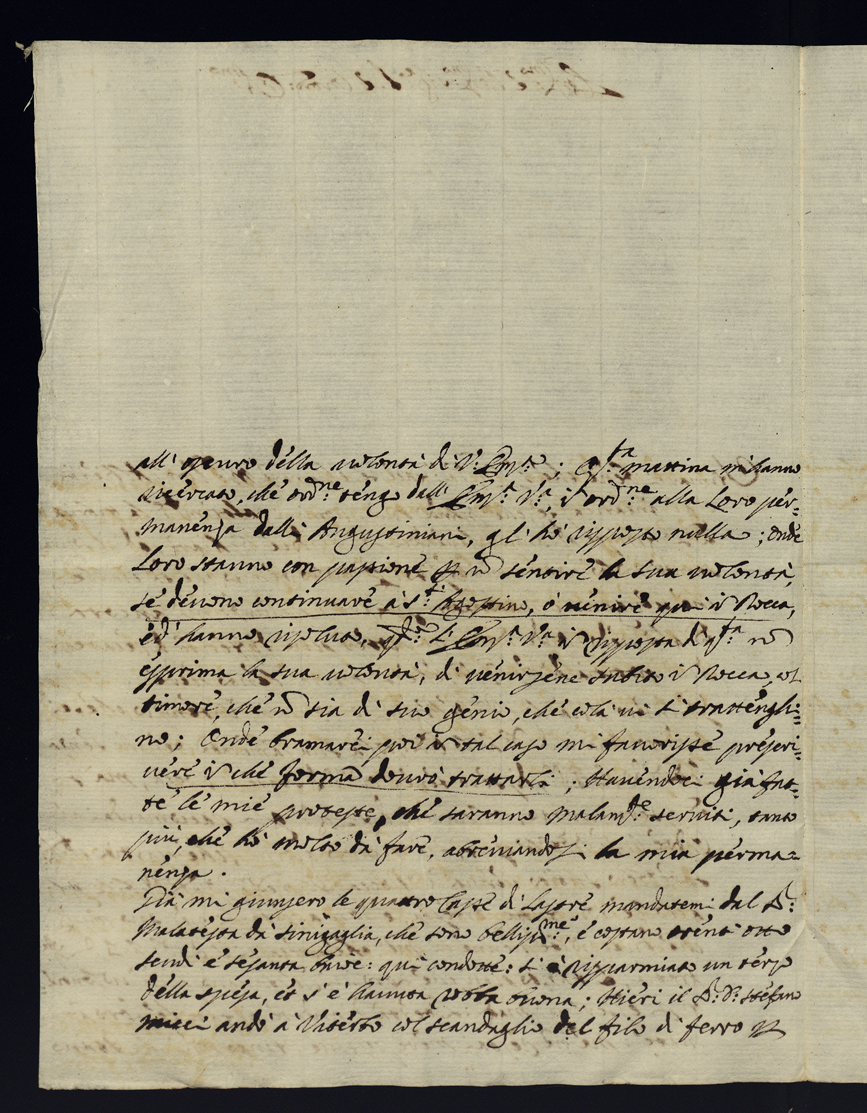 all' oscuro della volontà di V: Em.ª; Q.sta mattina mi hanno
ricercato, che ord.ne tengo dall' Em.ª V.ª, i ord.ne alla Loro per:
manenza dalli Augustiniani, gl'hò risposto nulla; onde
Loro stanno con passione p nõ sentire la sua volontà,
se devono continuare à S.t Agostino, ò venire qui i Rocca,
ed' hanno risoluto, q.do L'Em.ª V.ª i risposta di q.sta nõ
esprima la sua volontà, di venirsene subito i Rocca, col
timore, che nõ sia di suo genio, che colà vi si trattenghi:
no; Onde bramarei poi i tal caso mi favorisse prescri:
vere i che forma dovrò trattarli; Havendoci già fat:
te le mie proteste, che saranno malam.te serviti, tanto
più, che hò molto da fare, abbreviandosi la mia perma:
nenza.
Già mi giunsero le quattro Casse di Lastre mandatemi dal S.r:
Malatesta da Sinigaglia, che sono belliss.me, e costano trent'otto
scudi e sesanta, baioc: qui condotte: si è risparmiato un terzo
della spesa, et s'è havuta robba buona; Hieri il S.r D. Stefano
Micci andò à Viterbo col scandaglio del filo di ferro p